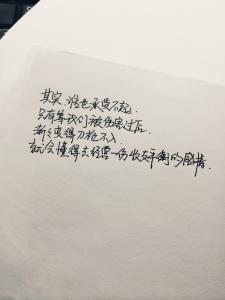 其实，谁也承受不起，
只有等我们被伤害过后，
渐渐变得刀枪不入，
就会懂得去经营一份收支平衡的感情。